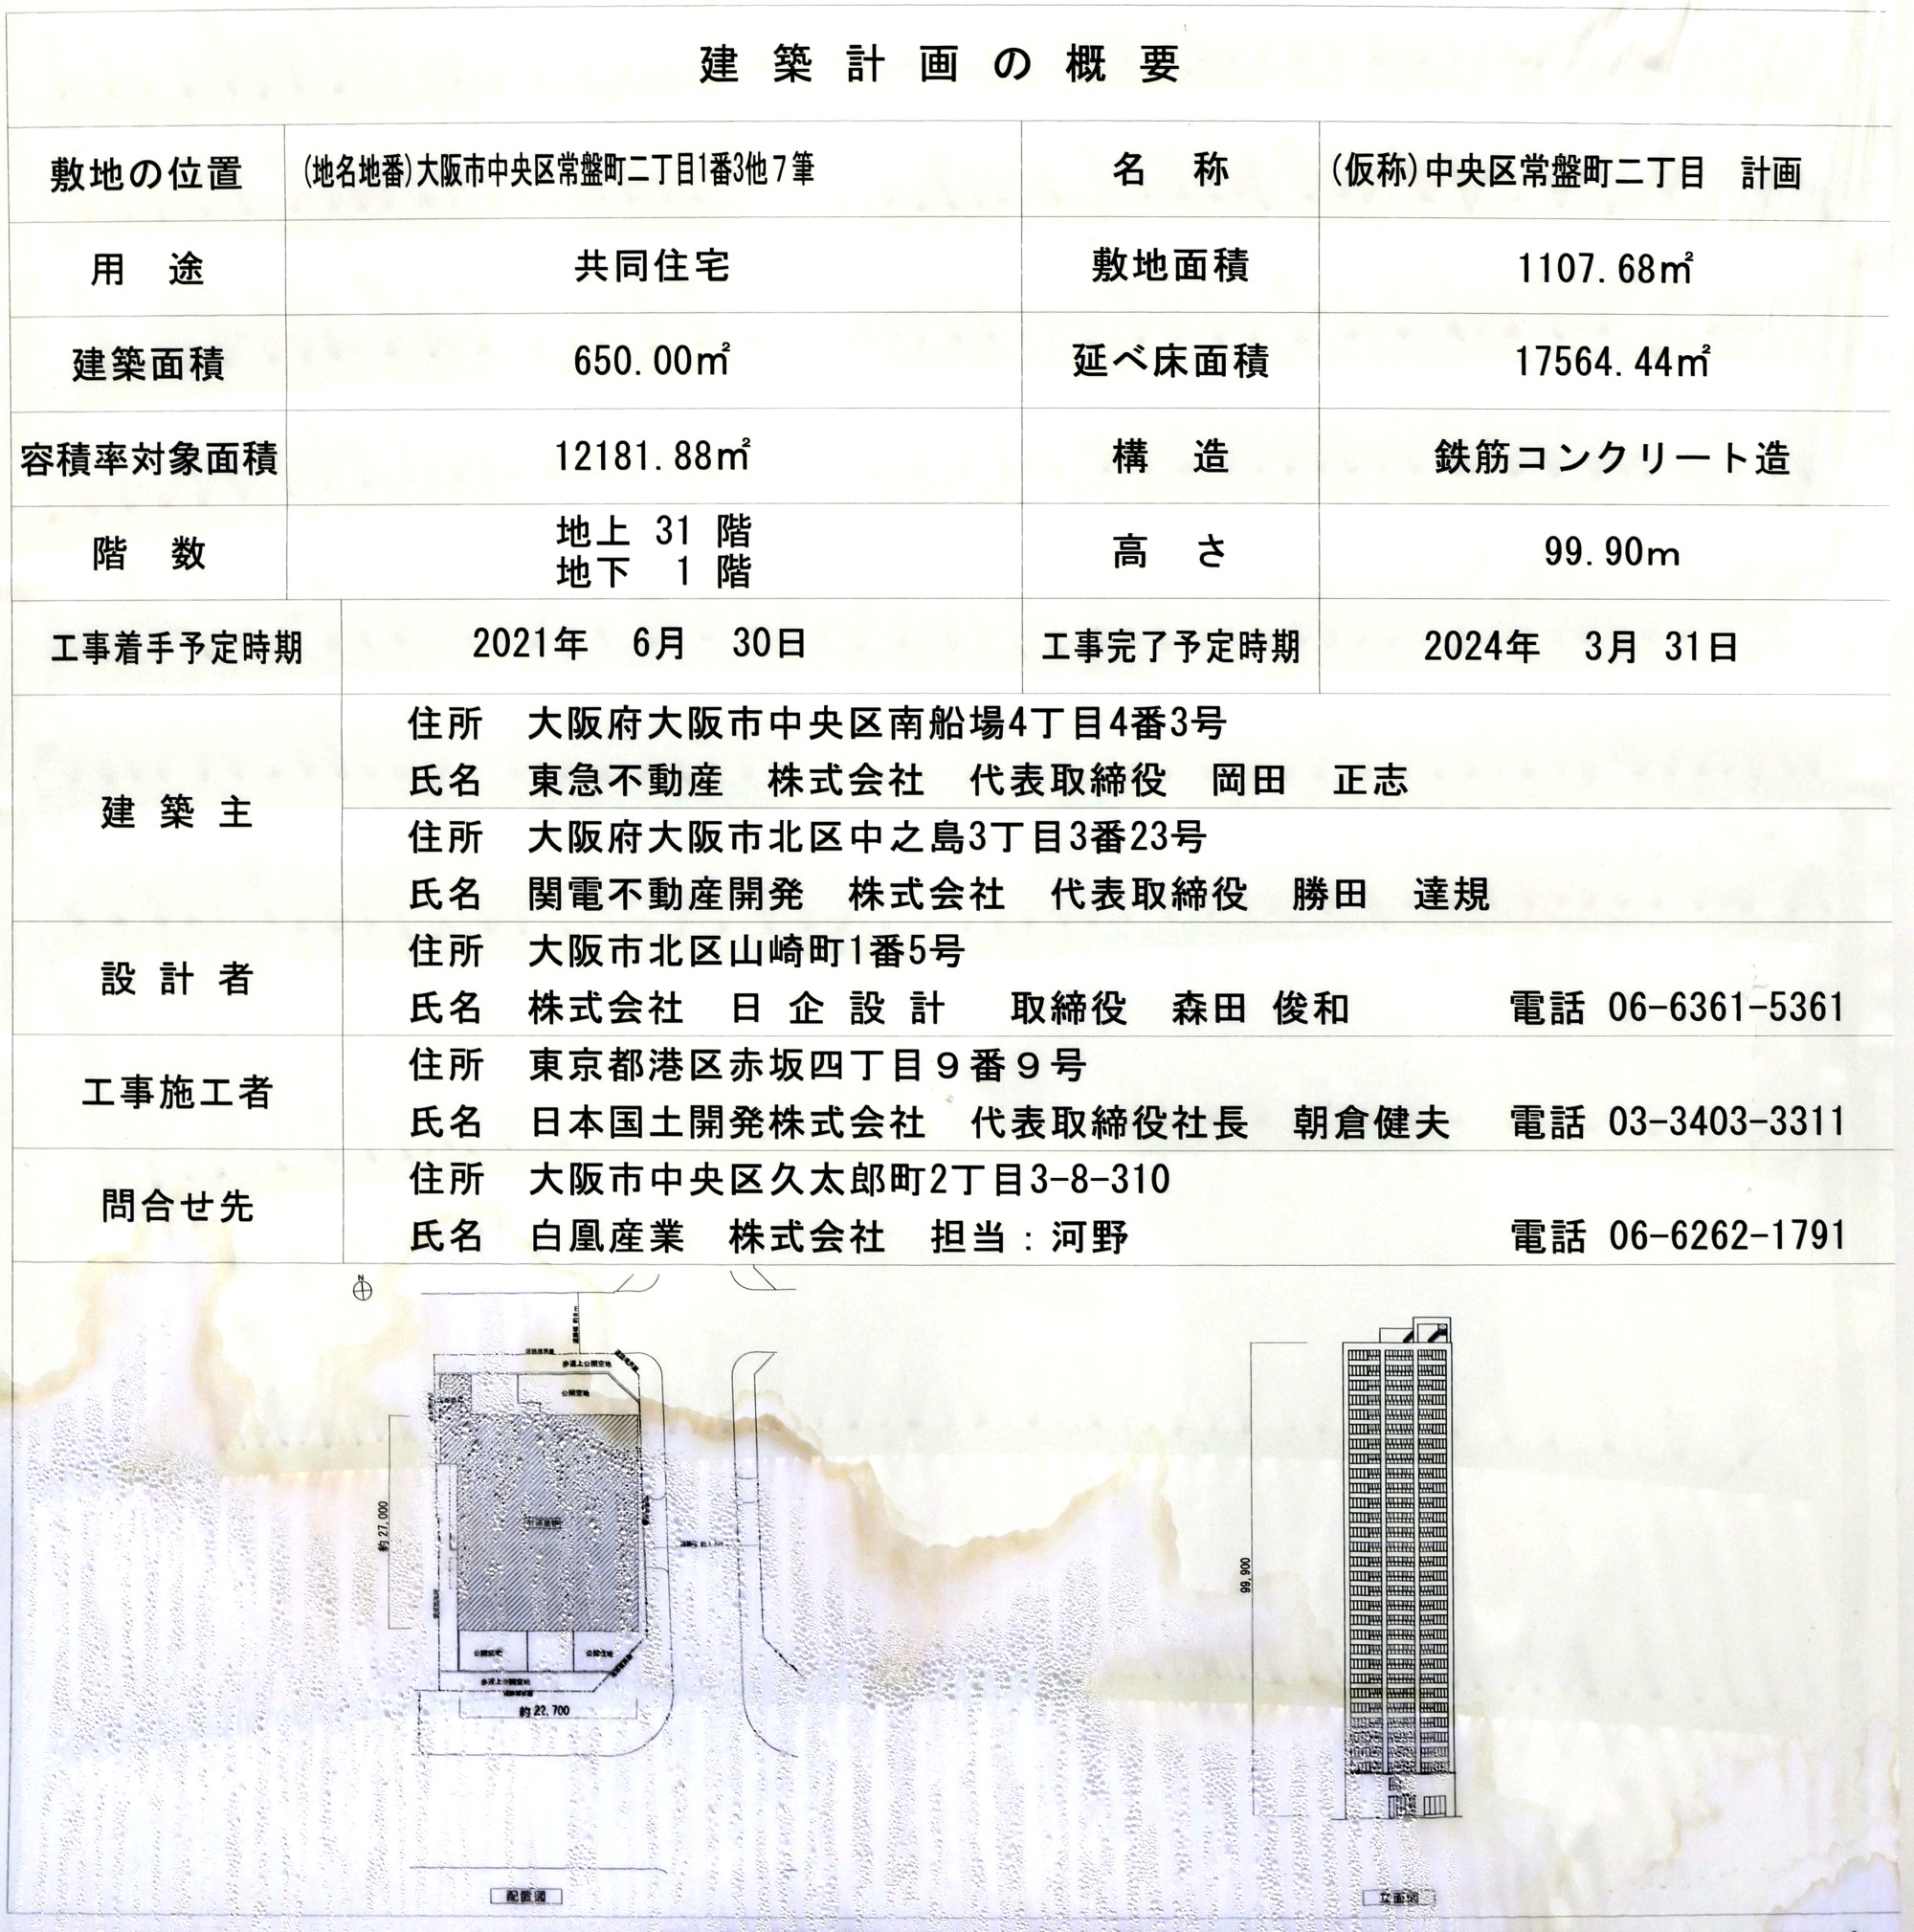 建築計画の概要
敷地の位置 (地名地番)大阪市中央区常盤町二丁目1番3他7筆 名 称 (仮称)中央区常盤町二丁目 計画
用 途 共同住宅 敷地面積 1107.68㎡
建築面積 650.00㎡ 延べ床面積 17564.44㎡
容積率対象面積 12181.88㎡ 構 造 鉄筋コンクリート造
階 数 地上 31 階
地下 1 階
高 さ 99.90m
工事着手予定時期 2021年 6月 30日 工事完了予定時期 2024年 3月 31日
建築主
住所 大阪府大阪市中央区南船場4丁目4番3号
氏名 東急不動産 株式会社 代表取締役 岡田 正志
住所 大阪府大阪市北区中之島3丁目3番23号
氏名 関電不動産開発 株式会社 代表取締役 勝田 達規
設計者
住所 大阪市北区山崎町1番5号
氏名 株式会社 日企設計 取締役 森田 俊和 電話 06-6361-5361
工事施工者
住所 東京都港区赤坂四丁目9番9号
氏名 日本国土開発株式会社 代表取締役社長 朝倉健夫 電話 03-3403-3311
問合せ先
住所 大阪市中央区久太郎町2丁目3-8-310
氏名 白凰産業 株式会社 担当:河野 電話 06-6262-1791
N
歩道上公開空地
公開空地
約27,000
公開空地
公開空地
歩道上公開空地
約22,700
配置図
99,900
立面図